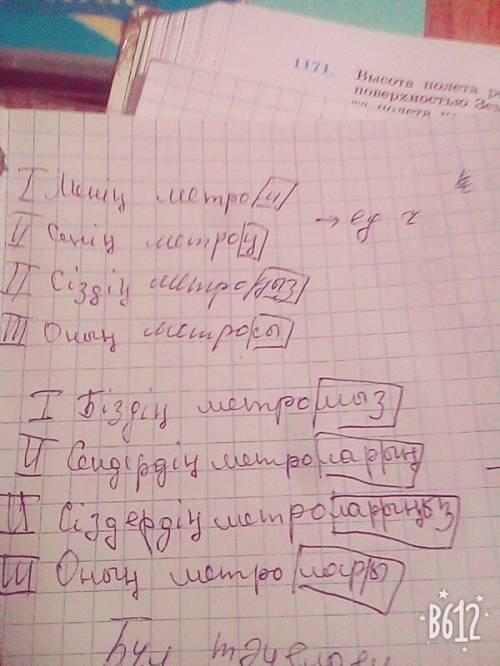 1171. Высота полета
поверхностью Зе
полета
I Менің метро м
II Сенің метро ң → ед ч
II Сіздің метро ңыз
III Оның метро сы
I Біздің метро мыз
II Сендердің метро ларың
II Сіздердің метро ларыңыз
III Оның метро лары
Бұл
B612